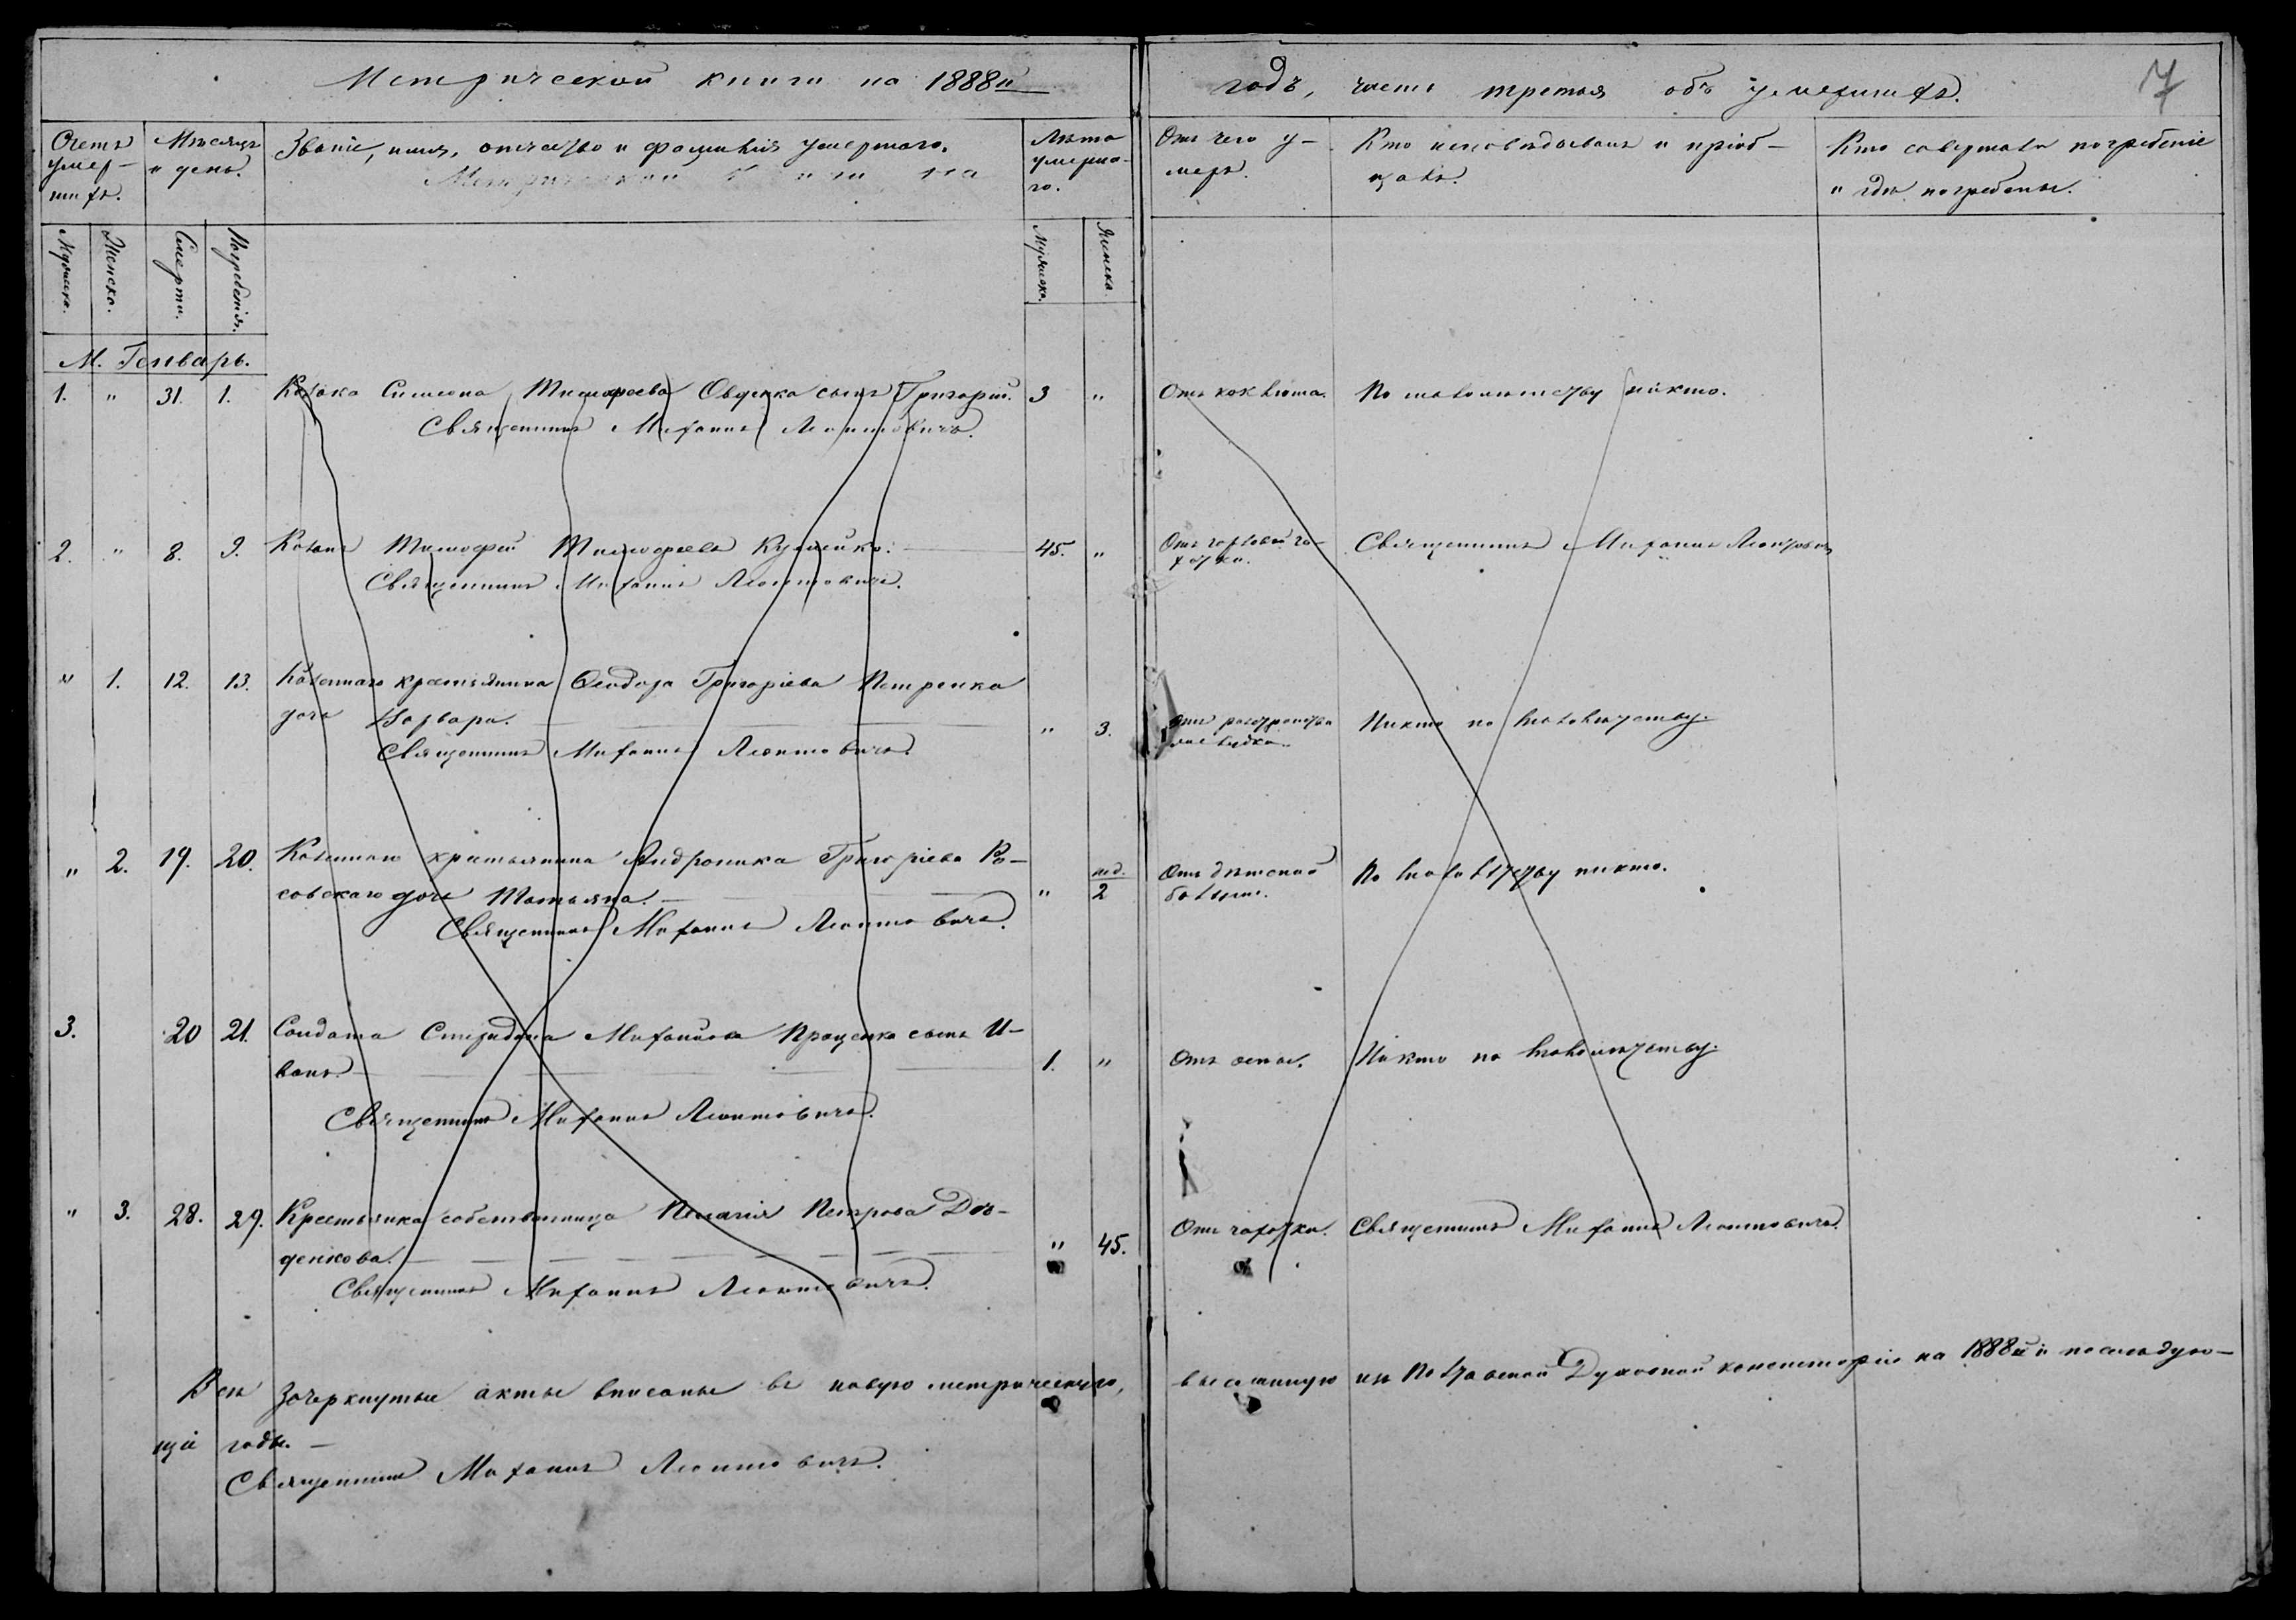 Метрической книги на 1888й
годъ, часть третья объ умершихъ.
7
Счетъ умер-
шихъ.
Мѣсяцъ
и день.
Званіе, имя, отчество и фамилія умершаго.
Метрической книги на
Лѣта
умерша-
го.
Отъ чего у-
меръ.
Кто исповѣдывалъ и пріоб-
щалъ.
Кто совершалъ погребеніе
и гдѣ погребены.
Мужеска.
Женска.
Смерти.
Погребенія.
Мужеска.
Женска.
М. Генварь.
1. " 31. 1. Козака Симеона Тимофеева Овдѣнка сынъ Григорій. 3 " Отъ коклюша. По малолѣтству никто.
Священникъ Михаилъ Леонтовичъ.
2. " 8. 9. Козакъ Тимофей Тимофеевъ 45. " Отъ горловой ча-
хотки. Священникъ Михаилъ Леонтовичъ
Священникъ Михаилъ Леонтовичъ.
" 1. 12. 13. Казеннаго крестьянина Ѳеодора Григоріева Петренка
дочь Варвара. " 3. Отъ разстройства
желудка. Никто по малолѣтству.
Священникъ Михаилъ Леонтовичъ.
" 2. 19. 20. Казеннаго крестьянина Андроника Григоріева Ро-
совскаго дочь Татьяна. " нд. 2 Отъ дѣтской
болѣзни. По малолѣтству никто.
Священникъ Михаилъ Леонтовичъ.
3. 20 21. Солдата Спиридона Михайлова Проценка сынъ И-
ванъ. 1. " Отъ оспы. Никто по малолѣтству.
Священникъ Михаилъ Леонтовичъ.
" 3. 28. 29. Крестьянка собственница Пелагія Петрова Дов-
денкова. " 45. Отъ чахотки. Священникъ Михаилъ Леонтовичъ.
Священникъ Михаилъ Леонтовичъ.
Всѣ зачеркнутые акты вписаны въ новую метрическую, высланную изъ Полтавской Духовной консисторіи на 1888й и послѣдую-
щій годы.
Священникъ Михаилъ Леонтовичъ.